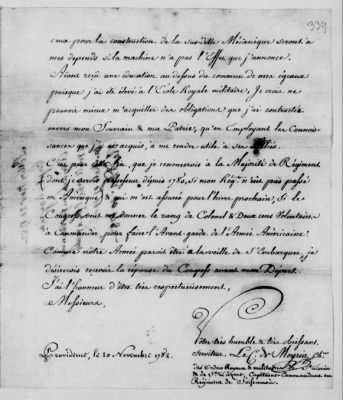 339
ceux pour la construction de la sus-ditte Mécanique seront à
mes depends si la machine n'a pas l'Effet que j'annonce.
Aiant reçu une éducation au dessus du commun de mes égaux
puisque j'ai été élevé à l'Ecole Royale militaire, Je crois ne
pouvoir mieux m'acquitter des obligations que j'ai contractées
envers mon Souverain & ma Patrie, qu'en Employant les Connois-
sances que j'y ai acquis, à me rendre utile à ses
C'est pour cette fin, que je renoncerois à la Majorité de Régiment
dont je depuis 1780, si mon Régt n'eut pas passé
en Amérique & qui m'est assurée pour l'hiver prochain, Si le
Congrès veut me donner le rang de Colonel & Deux cent Volontaires
à Commander, pour faire l'Avant-garde de l'Armée Américaine
Comme notre Armée paroit être à la veille de S'Embarquer, je
désirerois recevoir la réponse du Congrès avant mon Départ.
J'ai l'honneur d'être très respectueusement,
Messieurs,
Votre très humble & très obeissant
Serviteur Le C. De
des Ordres Royaux & militaires
& de St. Lazare, Capitaine-Commandant au
Régiment de Soissonnais
Providence, le 20 Novembre 1782.